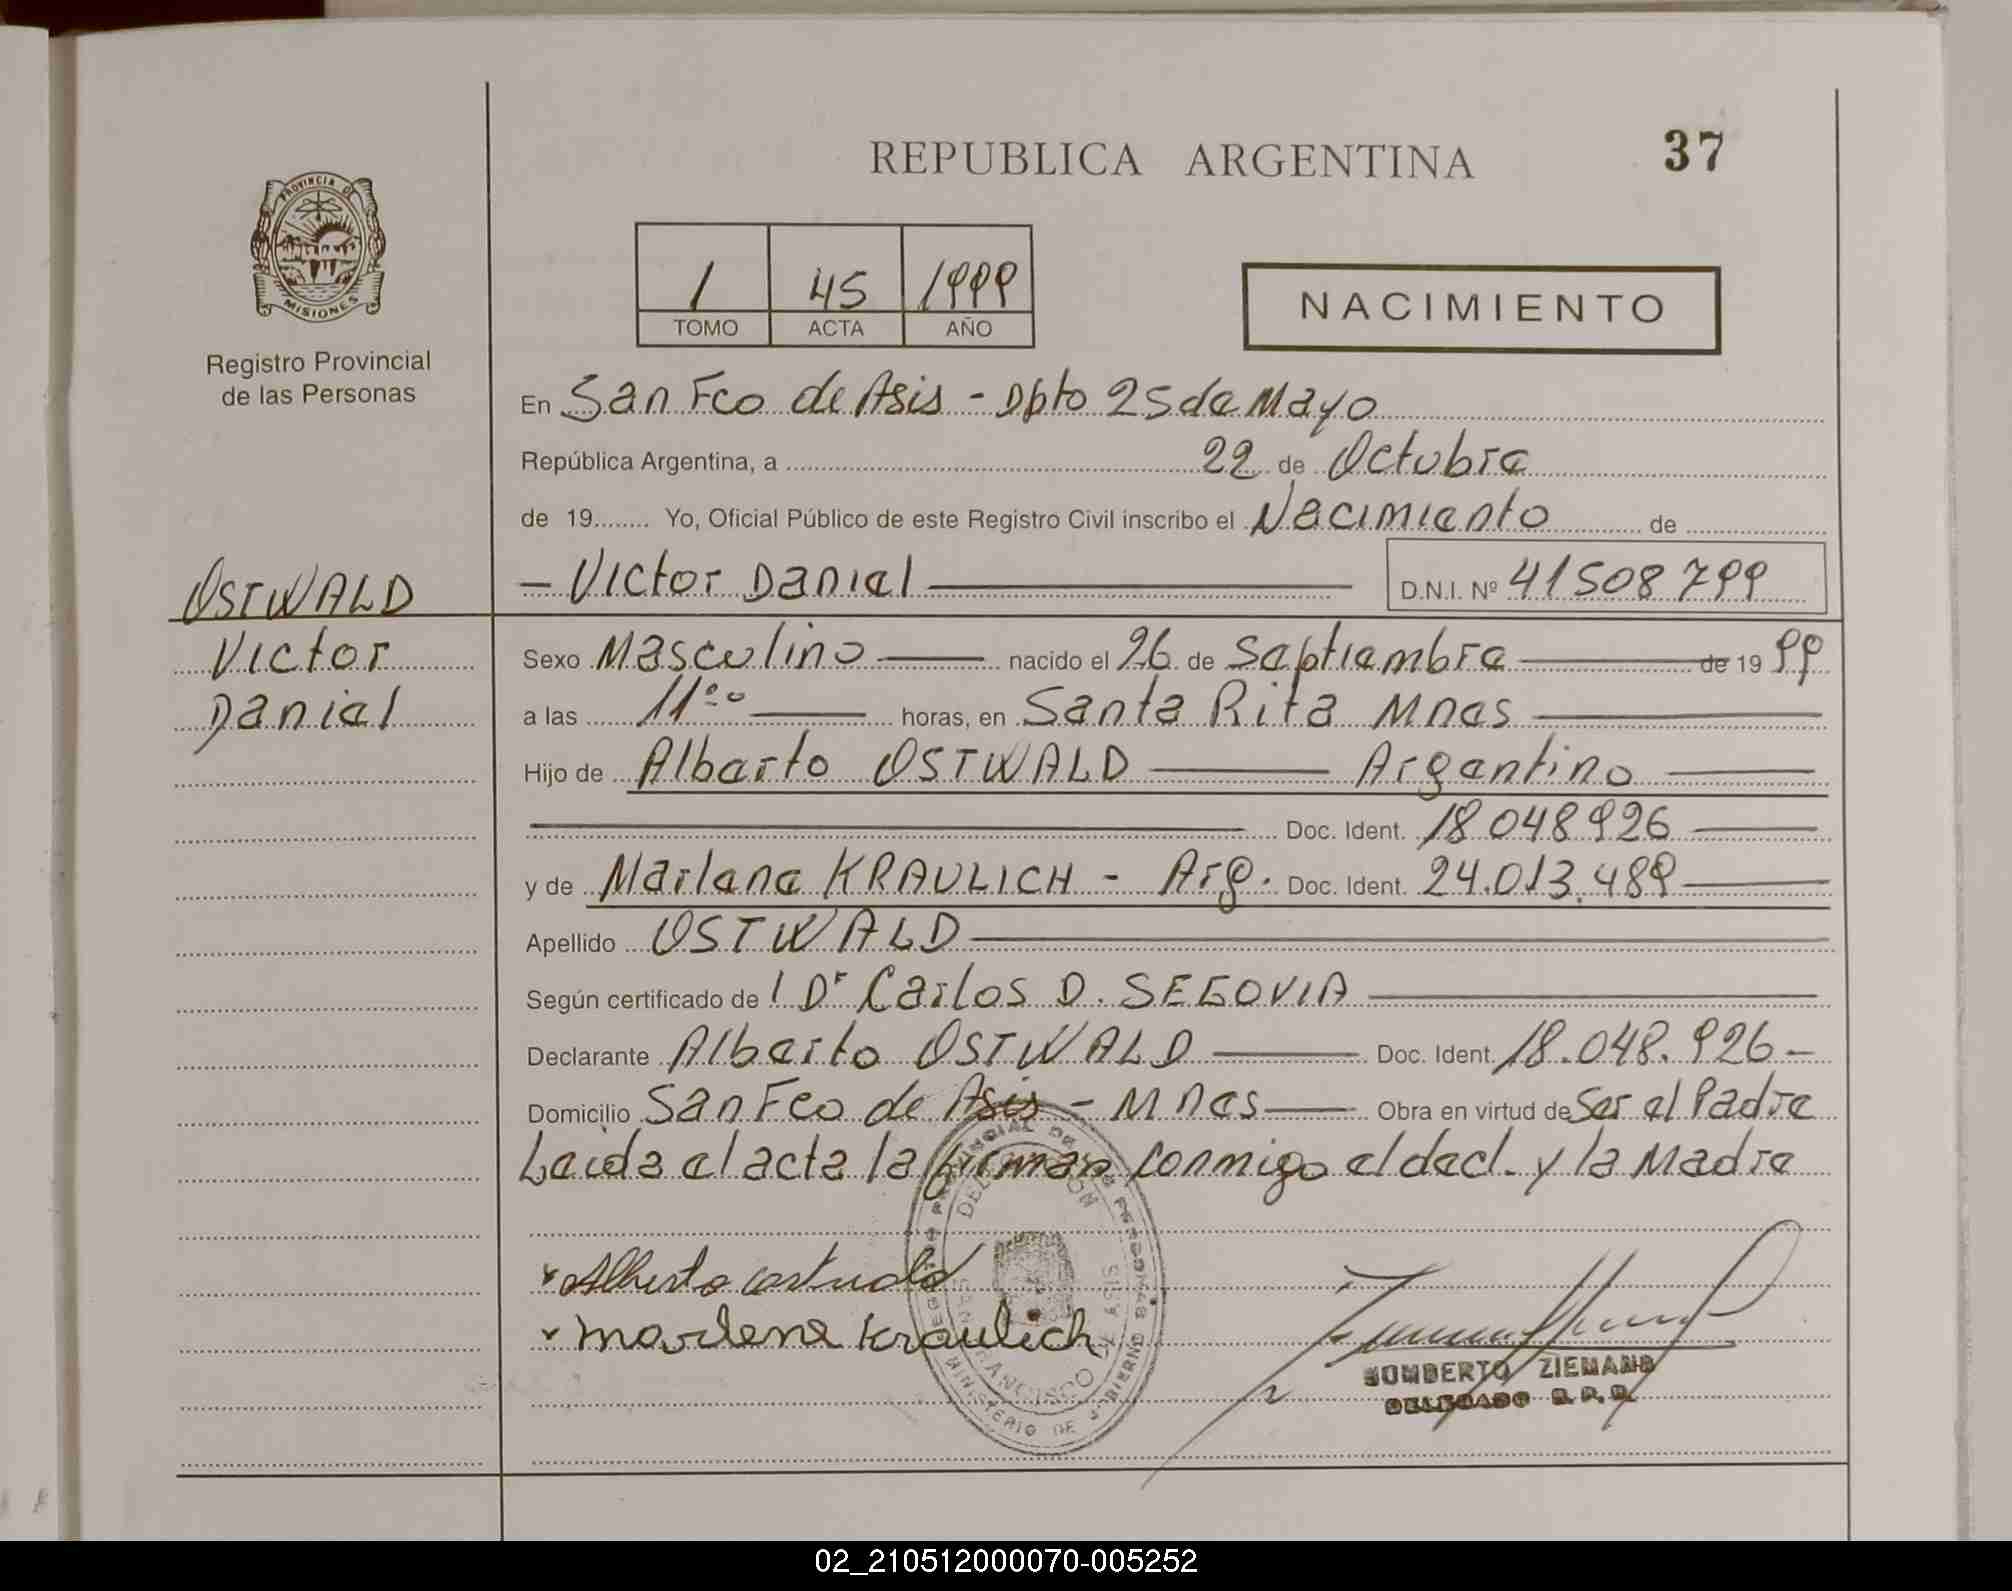 REPUBLICA ARGENTINA
37
PROVINCIA DE
MISIONES
Registro Provincial
de las Personas
1 45 1999
TOMO ACTA AÑO
NACIMIENTO
En San Fco de Asis - Dpto 25 de Mayo
República Argentina, a 22 de Octubre
de 19........ Yo, Oficial Público de este Registro Civil inscribo el Nacimiento de
OSTWALD
Victor
Daniel
- Victor Daniel
D.N.I. Nº 41508799
Sexo Masculino nacido el 26 de Septiembre de 19 99
a las 11:00 horas, en Santa Rita Mnes
Hijo de Alberto OSTWALD Argentino
Doc. Ident. 18.048.926
y de Marlene KRAULICH - Arg. Doc. Ident. 24.013.489
Apellido OSTWALD
Según certificado de l Dr Carlos D. SEGOVIA
Declarante Alberto OSTWALD Doc. Ident. 18.048.926-
Domicilio San Fco de Asis - Mnes Obra en virtud de Ser el Padre
Leida el acta la firman conmigo el decl. y la Madre
Alberto ostwald
Marlene Kraulich
PROVINCIAL DE LAS PERSONAS
MINISTERIO DE GOBIERNO
DELEGACION
SAN FRANCISCO DE ASIS
HUMBERTO ZIEMANN
DELEGADO R.P.P.
02_210512000070-005252